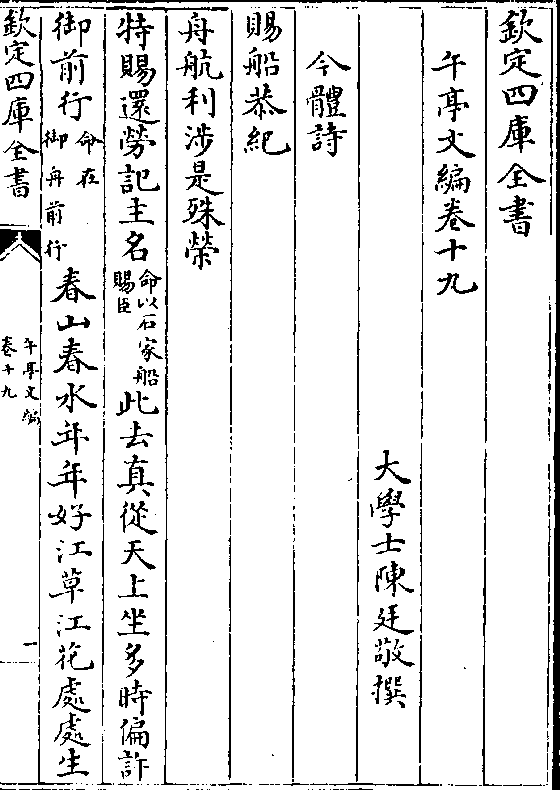 欽定四庫全書
午亭文編卷十九
大學士陳廷敬撰
今體詩
賜船恭紀
舟航利涉是殊榮
特賜還勞記主名命以石家船賜臣此去真從天上坐多時偏許
御前行命在御舟前行春山春水年年好江草江花處處生
欽定四庫全書
午亭文編
卷十九
一